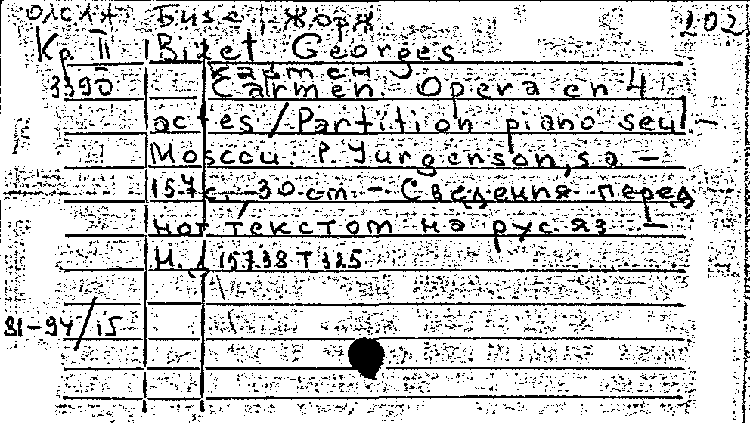 Бизе, Жорж 202
Кр II Bizet Georges
Кармен
3390 Carmen. Opera en 4
actes / Partition piano seul. —
Moscou: P. Jurgenson, s.a. —
157 с. — 30 cm. — Сведения перед
нот. текстом на рус. яз. —
Н.д. 15738 т 325
81-94/15